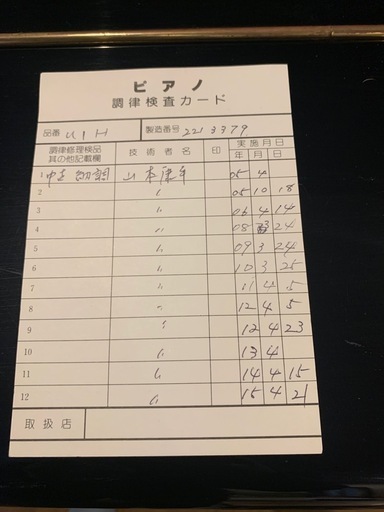 ピアノ
調律検査カード
品番 U1H 製造番号 2213379
調律修理検品 其の他記載欄 技術者名 印 実施月日 年 月 日
1 中古 納調 山本康年 05 4
2 〃 05 10 18
3 〃 06 4 14
4 〃 08 3 24
5 〃 09 3 24
6 〃 10 3 25
7 〃 11 4 5
8 〃 12 4 5
9 〃 12 4 23
10 〃 13 4
11 〃 14 4 15
12 〃 15 4 21
取扱店